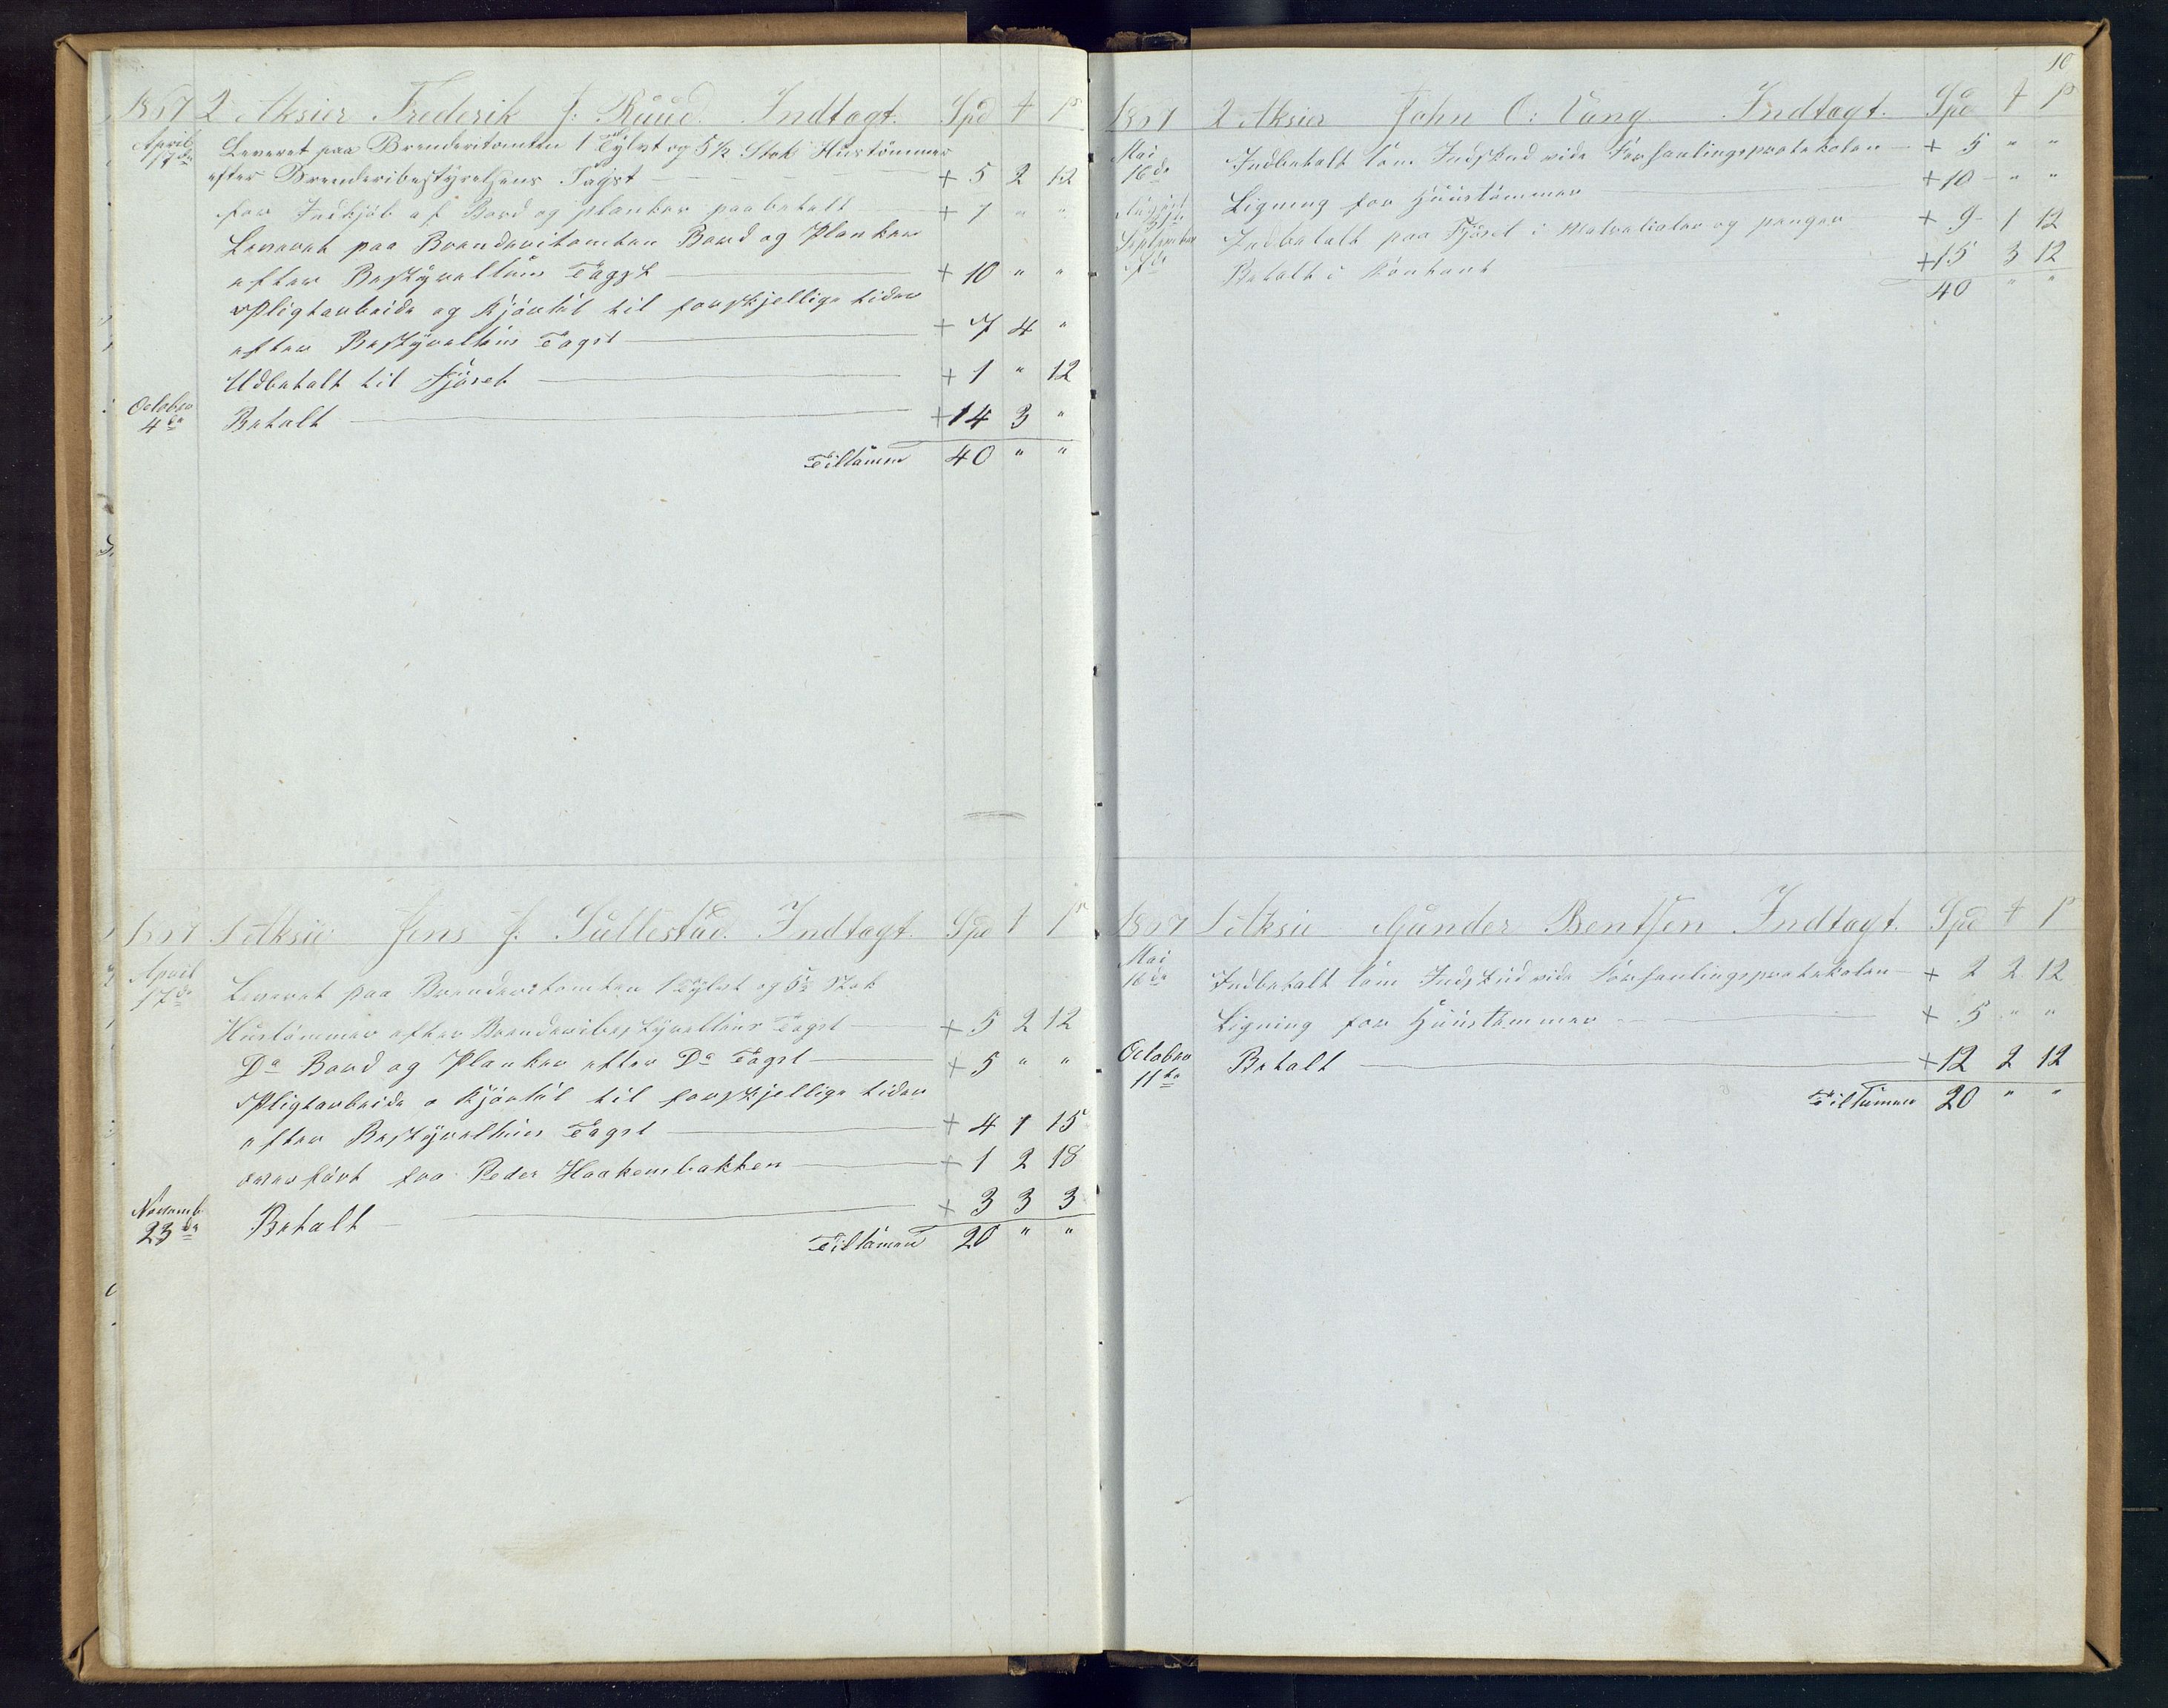 1857 2 Aksier Frederik J: Ruud. Indtagt. Spd ₰ ß
April 17de Leveret paa Brenderitomten 1 Tylvt og 5 1/2 Stok Hustömmer
efter Brenderibestyrelsens Tagst + 5 2 12
for Indkjöb af Bord og planker paabetalt + 7 " "
Leveret paa Brenderitomten Bord og Planker
efter Bestyrelsens Tagst + 10 " "
Pligtarbeide og Kjörsel til forskjellige tider
efter Bestyrelsens Tagst + 7 4 "
Udbetalt til Fjöset + 1 " 12
October 4de Betalt + 14 3 "
Tilsammen 40 " "
1857 1 Aksie Jens J. Sullestad. Indtagt. Spd ₰ ß
April 17de Leveret paa Brenderitomten 1 Tylvt og 5 1/2 Stok
Hustömmer efter Brenderibestyrelsens Tagst + 5 2 12
Do Bord og Planker efter Do Tagst + 5 " "
Pligtarbeide o Kjörsel til forskjellige tider
efter Bestyrelsens Tagst + 4 1 15
overfört fra Peder Haakensbakken + 1 2 18
Novemb. 23de Betalt + 3 3 3
Tilsammen 20 " "
10
1857 2 Aksier John O: Vang Indtagt. Spd ₰ ß
Mai 16de Indbetalt som Indskud vide Forhanlingsprotokolen + 5 " "
Ligning for Huustömmer + 10 " "
August Indbetalt paa Fjöset i Matrealiater og penger + 9 1 12
September Betalt i Kontant + 15 3 12
40 " "
1857 1 Aksie Gunder Bentsen Indtagt. Spd ₰ ß
Mai 16de Indbetalt som Indskud vide Forhanlingsprotokolen + 2 2 12
Ligning for Huustömmer + 5 " "
October 11te Betalt + 12 2 12
Tilsammen 20 " "